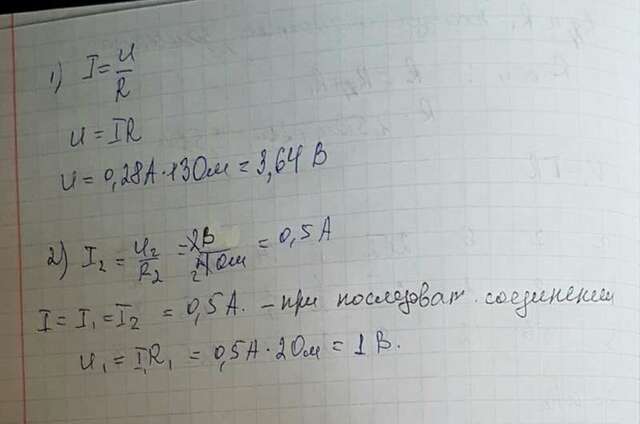 1) I = U/R
U = IR
U = 0,28А · 13Ом = 3,64 В
2) I₂ = U₂/R₂ = 2В/4Ом = 0,5 А
I = I₁ = I₂ = 0,5А. – при последоват. соединении
U₁ = I₁R₁ = 0,5А · 2Ом = 1 В.